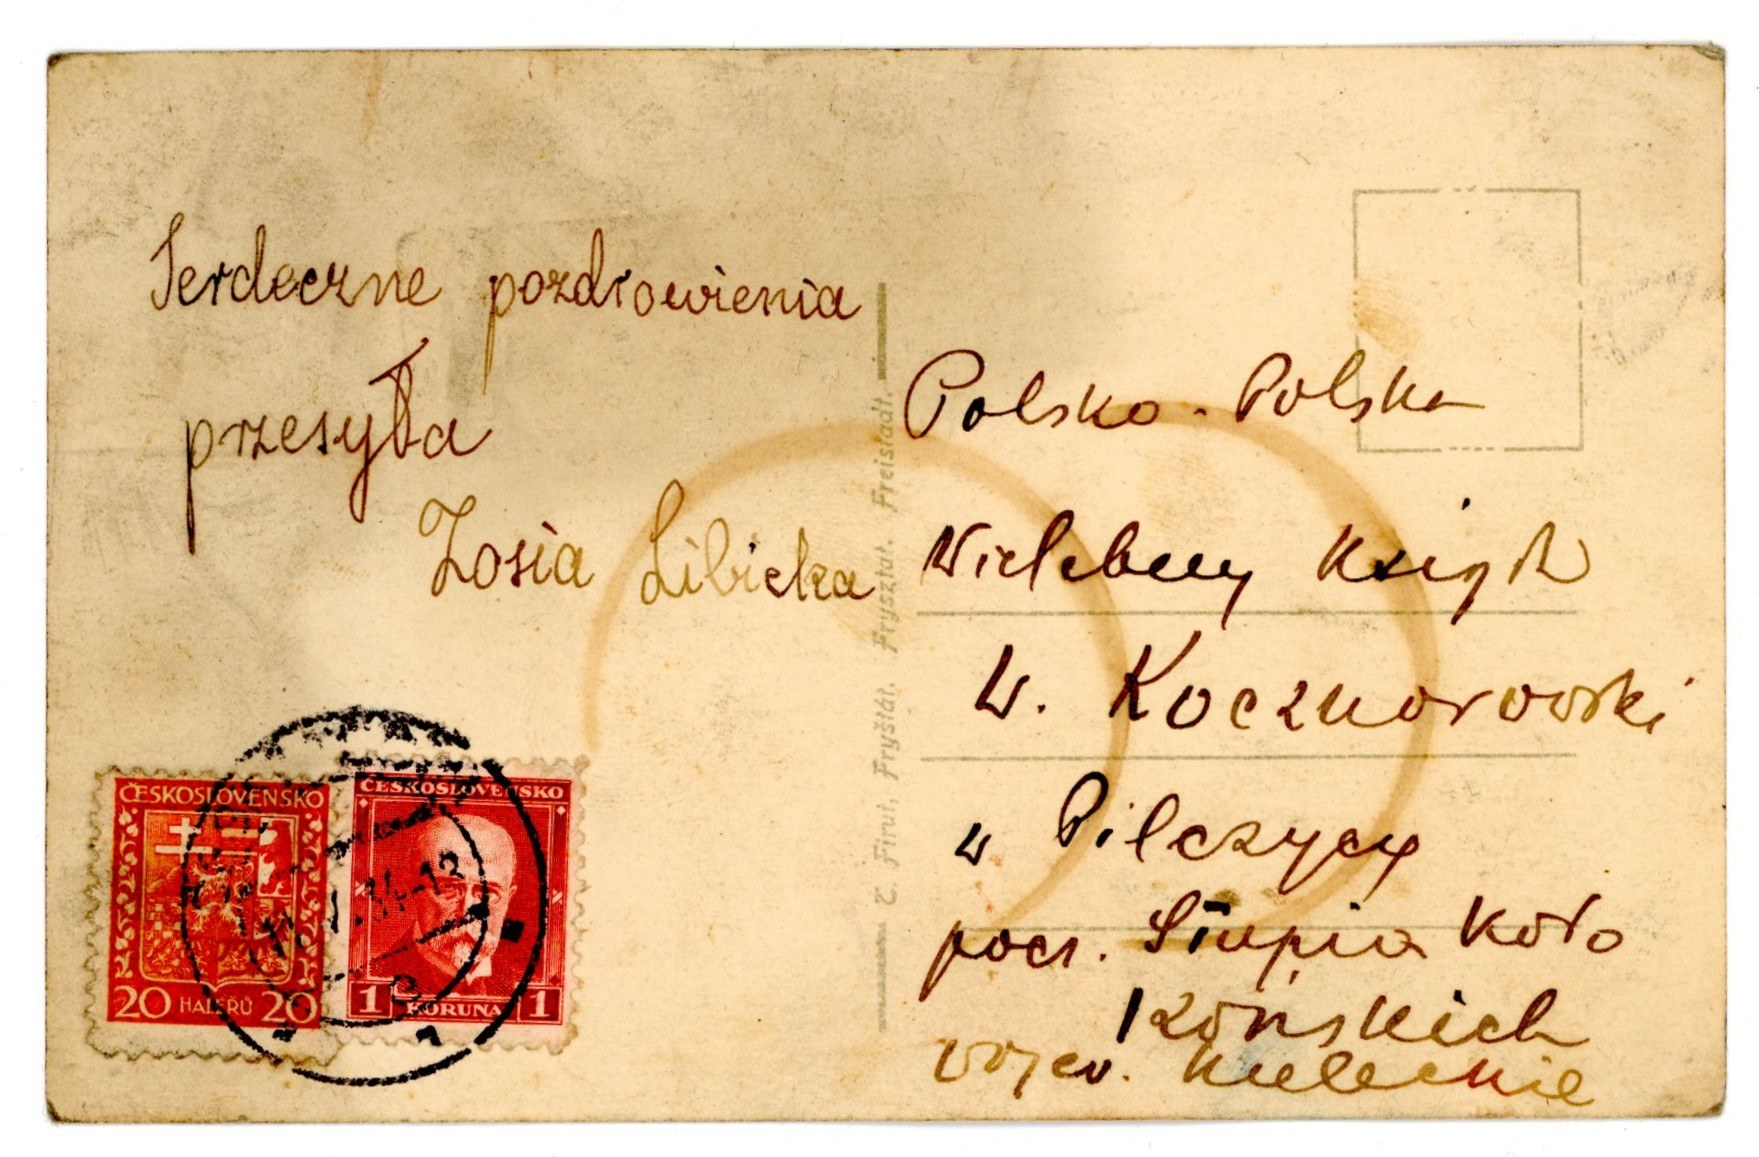 Serdeczne pozdrowienia
przesyła
Zosia Libicka
Polsko - Polska
Wielebny Ksiądz
W. Kocznorowski
w Pilczycy
pocz. Słupia koło
Końskich
wojew. Kieleckie
Č. Firut, Fryštát. Frysztat. Freistadt.
ČESKOSLOVENSKO
20 HALÉŘŮ 20
ČESKOSLOVENSKO
1 KORUNA 1
1.34-13